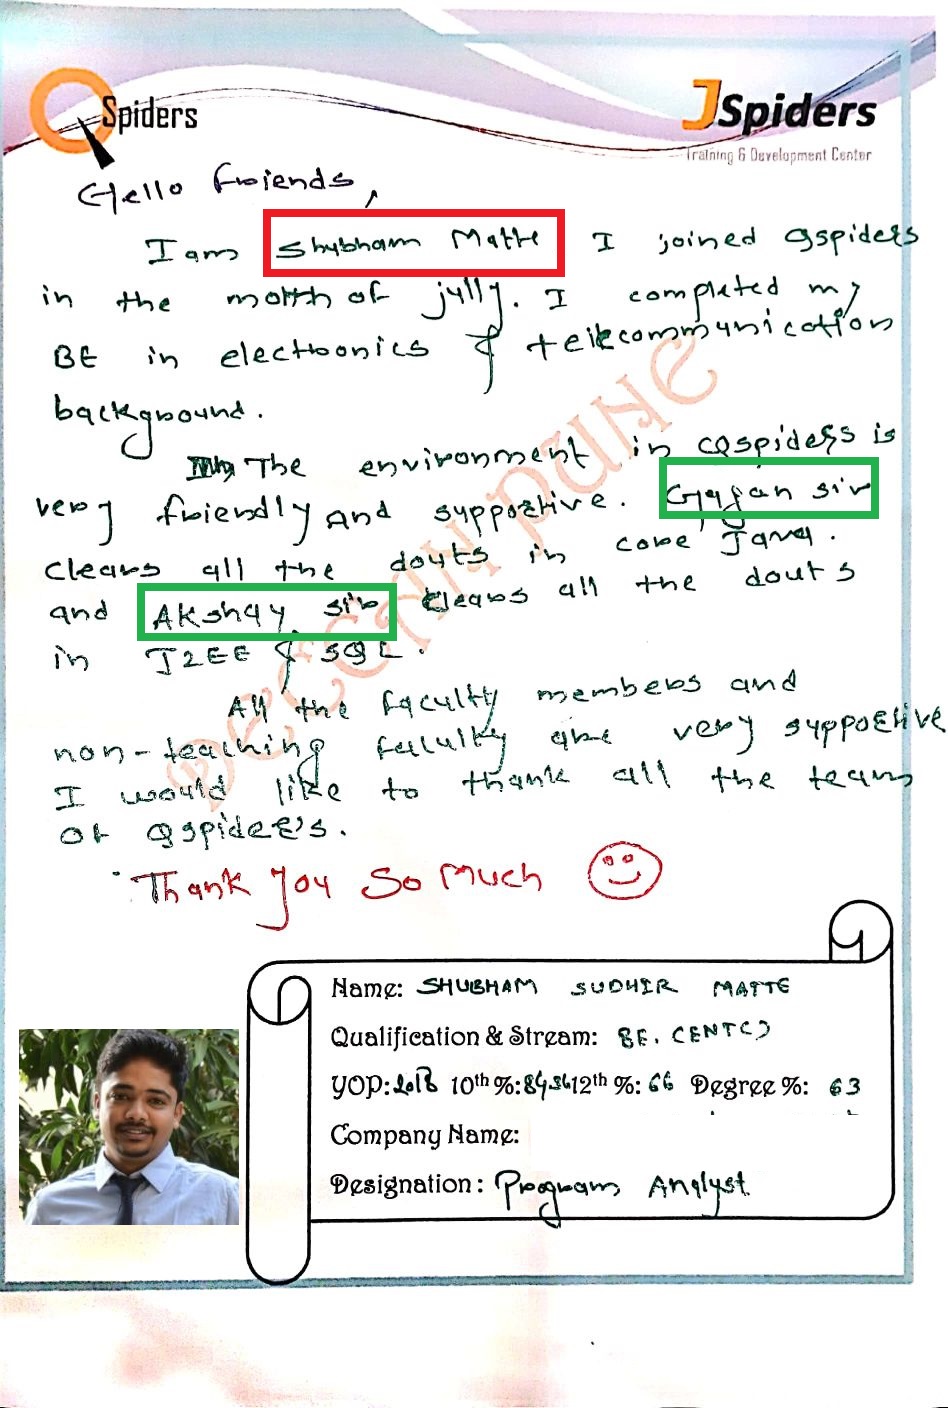 QSpiders
JSpiders
Training & Development Center
Hello friends,
I am Shubham Matte I joined Qspiders
in the month of jully. I completed my
BE in electronics & telecommunication
background.
The environment in Qspiders is
very friendly And supportive. Gajan sir
clears all the douts in core Java.
and Akshay sir clears all the douts
in J2EE & SQL.
All the faculty members and
non-teaching faculty are very supportive
I would like to thank all the team
of Qspider's.
Thank you so much
DECCAN PUNE
Name: SHUBHAM SUDHIR MATTE
Qualification & Stream: BE. (ENTC)
YOP: 2018 10th %: 12th %: 66 Degree %: 63
Company Name:
Designation: Program Analyst